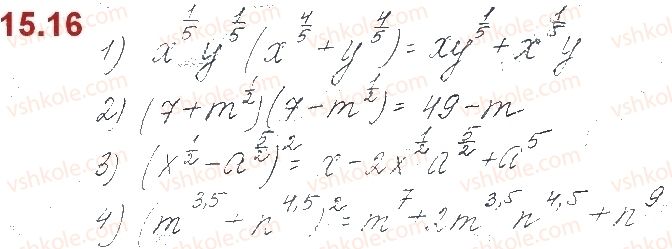 15.16
1) x^{1/5} y^{1/5} (x^{4/5} + y^{4/5}) = xy^{1/5} + x^{1/5}y
2) (7 + m^{1/2})(7 - m^{1/2}) = 49 - m
3) (x^{1/2} - a^{5/2})^2 = x - 2x^{1/2} a^{5/2} + a^5
4) (m^{3,5} + n^{4,5})^2 = m^7 + 2m^{3,5} n^{4,5} + n^9
vshkole.com